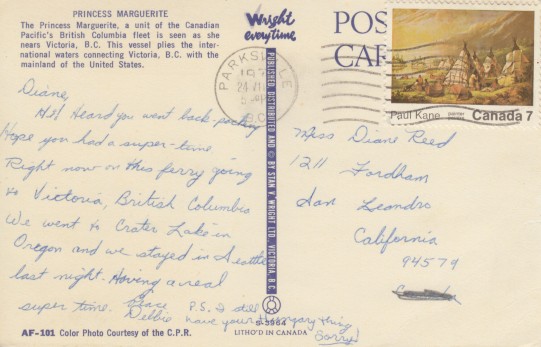 PRINCESS MARGUERITE
The Princess Marguerite, a unit of the Canadian
Pacific's British Columbia fleet is seen as she
nears Victoria, B.C. This vessel plies the inter-
national waters connecting Victoria, B.C. with the
mainland of the United States.
Diane,
Hi! Heard you went back-packing
Hope you had a super-time.
Right now on this ferry going
to Victoria, British Columbia
We went to Crater Lake in
Oregon and we stayed in Seattle
last night. Having a real
super time.
Debbie
P.S. I still
have your Hungary thing
Sorry!
AF-101 Color Photo Courtesy of the C.P.R.
Wright
everytime
PUBLISHED, DISTRIBUTED AND © BY STAN V. WRIGHT LTD., VICTORIA, B.C.
S-3964
LITHO'D IN CANADA
POS
CAR
PARKSVILLE
24
B.C.
Paul Kane
painter
peintre
Canada 7
Miss Diane Reed
1211 Fordham
San Leandro
California
94579